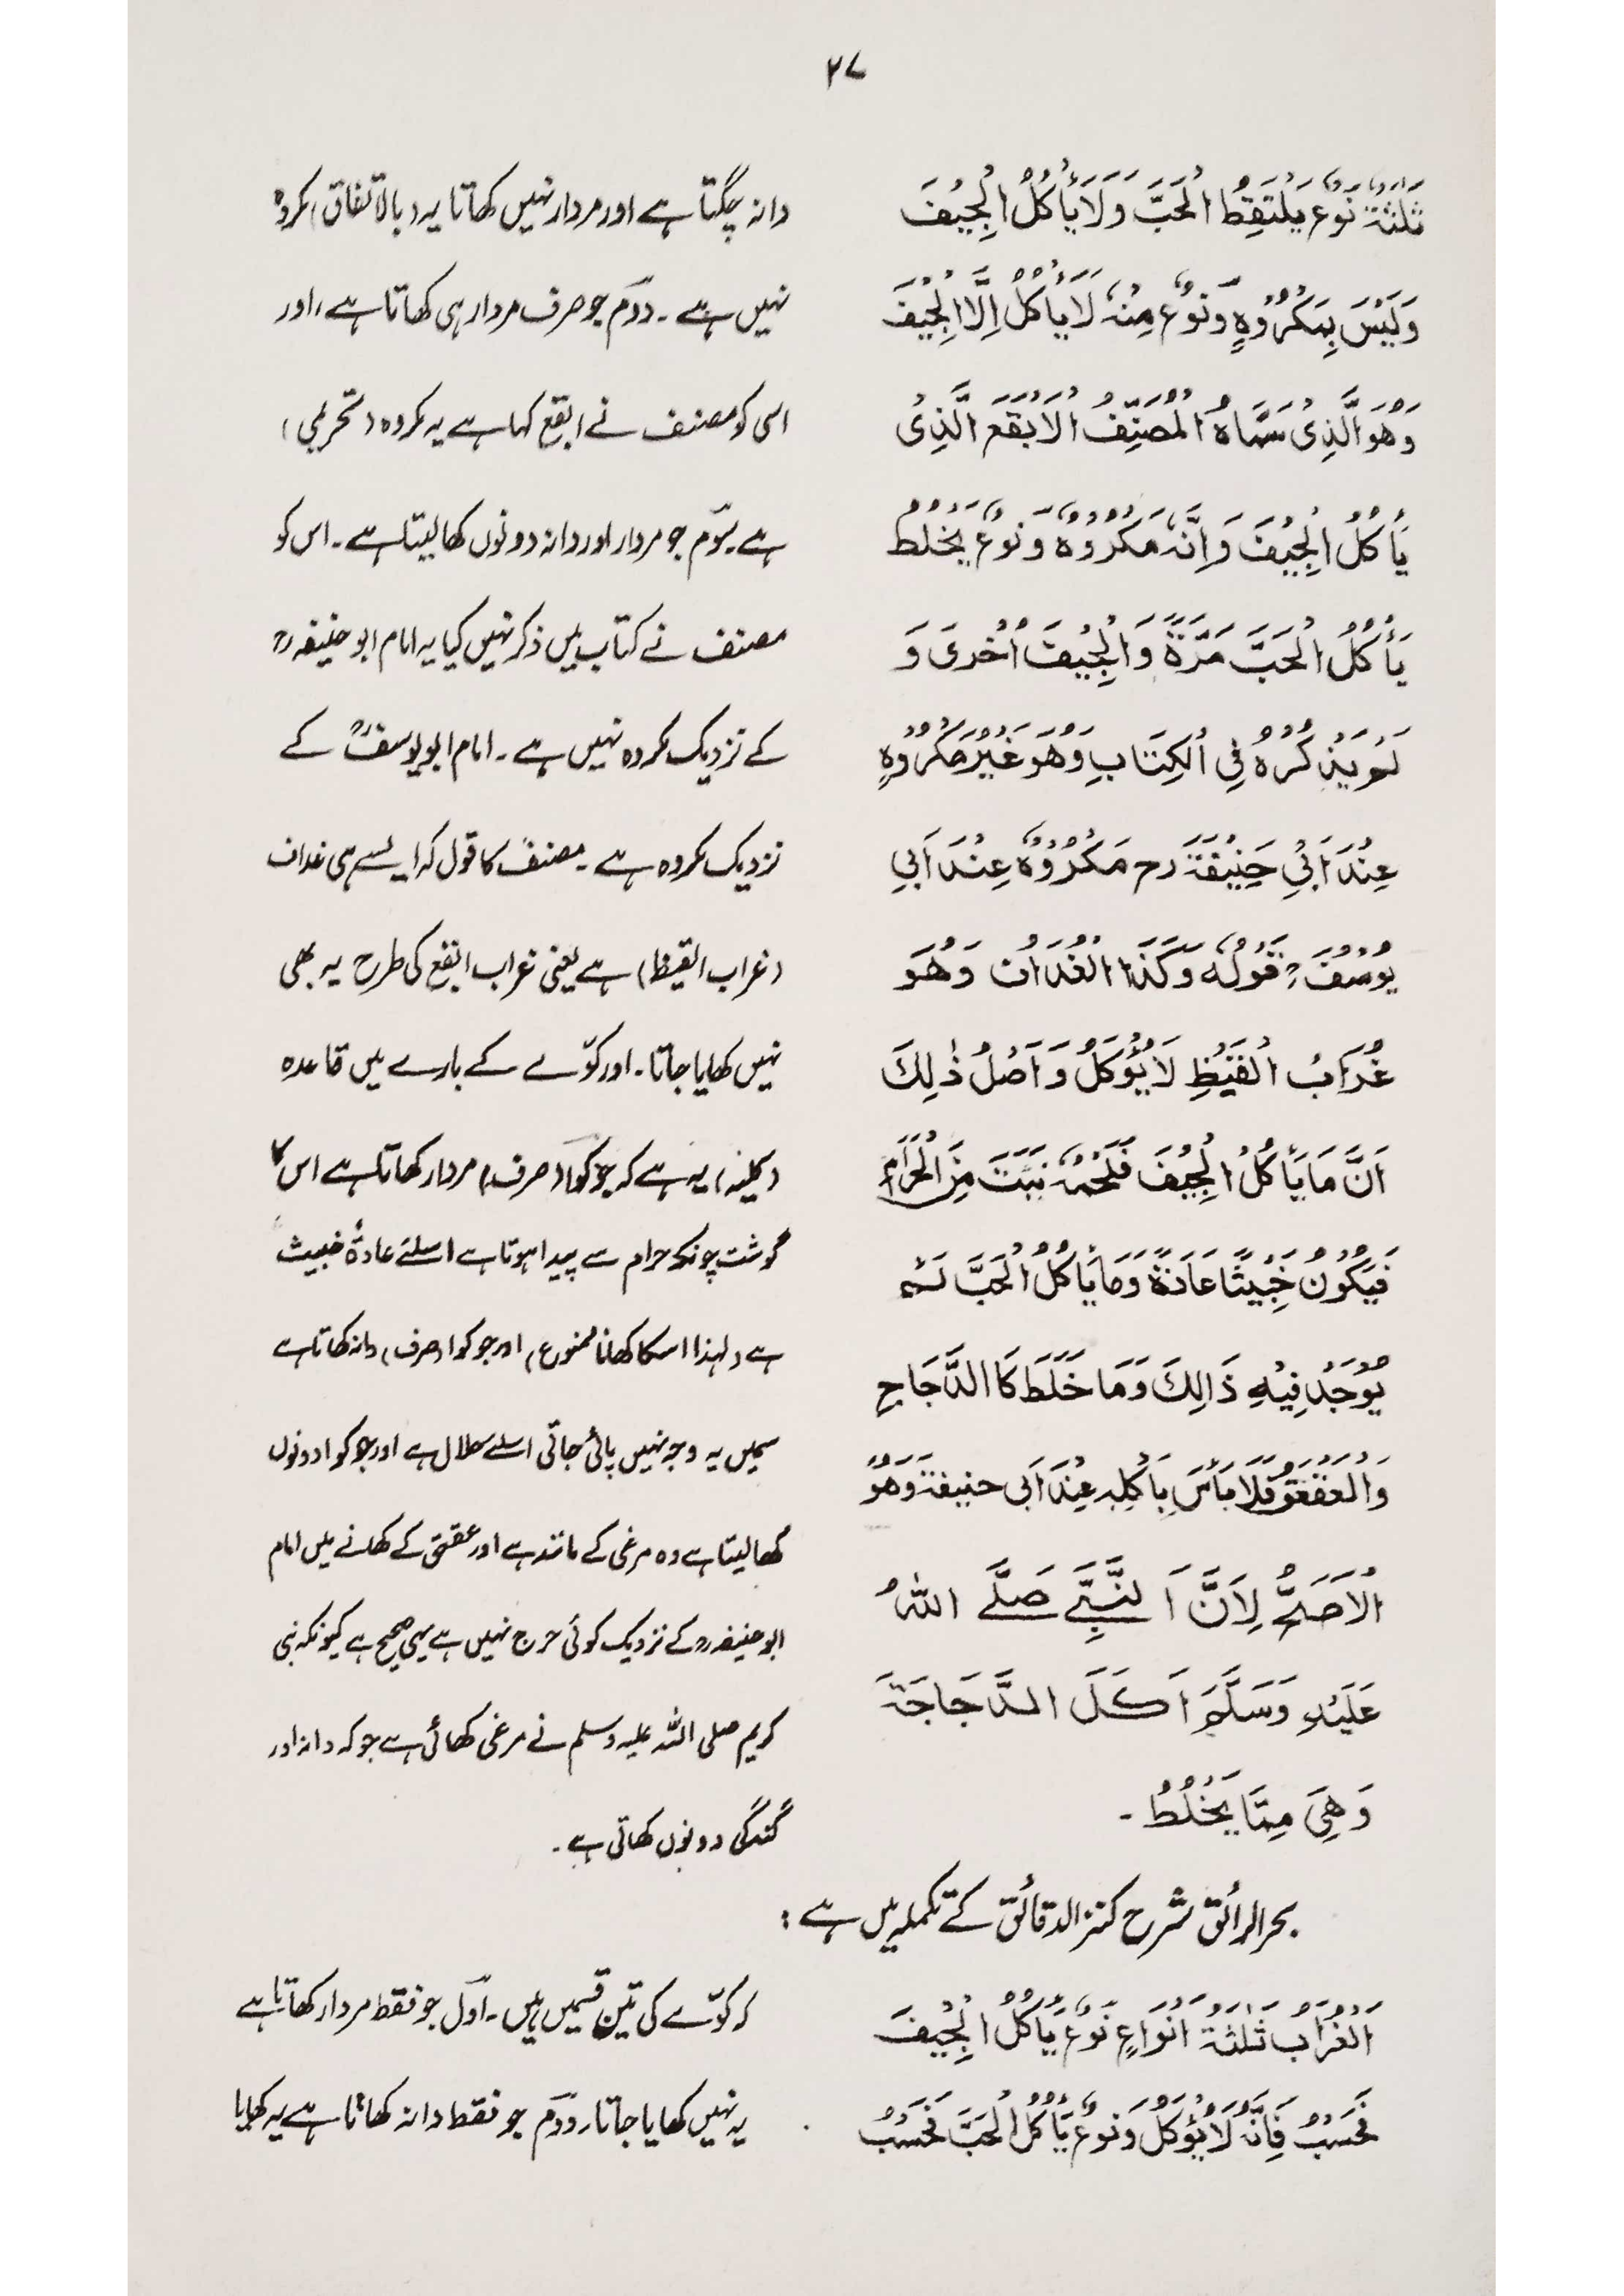 ۲۷
ثَلٰثَةٌ نَوْعٌ يَلْتَقِطُ الْحَبَّ وَلَا يَأْكُلُ الْجِيَفَ
وَلَيْسَ بِمَكْرُوْهٍ وَنَوْعٌ مِنْهُ لَا يَأْكُلُ اِلَّا الْجِيَفَ
وَهُوَ الَّذِىْ سَمَّاهُ الْمُصَنِّفُ الْاَبْقَعَ الَّذِىْ
يَأْكُلُ الْجِيَفَ وَاِنَّهٗ مَكْرُوْهٌ وَنَوْعٌ يَخْلُطُ
يَأْكُلُ الْحَبَّ مَرَّةً وَالْجِيَفَ اُخْرٰى وَ
لَمْ يَذْكُرْهُ فِى الْكِتَابِ وَهُوَ غَيْرُ مَكْرُوْهٍ
عِنْدَ اَبِىْ حَنِيْفَةَ رح مَكْرُوْهٌ عِنْدَ اَبِى
يُوْسُفَ رح قَوْلُهٗ وَكَذَا الْغُدَافُ وَهُوَ
غُرَابُ الْقَيْظِ لَا يُؤْكَلُ وَاَصْلُ ذٰلِكَ
اَنَّ مَا يَأْكُلُ الْجِيَفَ فَلَحْمُهٗ نَبَتَ مِنَ الْحَرَامِ
فَيَكُوْنُ خَبِيْثًا عَادَةً وَمَا يَأْكُلُ الْحَبَّ لَمْ
يُوْجَدْ فِيْهِ ذَالِكَ وَمَا خَلَطَ كَا الدَّجَاجِ
وَالْعَقْعَقِ فَلَا بَأْسَ بِاَكْلِهٖ عِنْدَ اَبِى حنيفة وَهُوَ
الْاَصَحُّ لِاَنَّ النَّبِىَّ صَلَّى اللهُ
عَلَيْهِ وَسَلَّمَ اَكَلَ الدَّجَاجَةَ
وَهِىَ مِمَّا يَخْلُطُ ۔
دانہ چگتا ہے اور مردار نہیں کھاتا یہ (بالاتفاق) مکروہ
نہیں ہے ۔ دوم جو صرف مردار ہی کھاتا ہے، اور
اسی کو مصنف نے ابقع کہا ہے یہ مکروہ (تحریمی)
ہے سوم جو مردار اور دانہ دونوں کھا لیتا ہے ۔ اس کو
مصنف نے کتاب میں ذکر نہیں کیا یہ امام ابو حنیفہ رح
کے نزدیک مکروہ نہیں ہے ۔ امام ابو یوسفؒ کے
نزدیک مکروہ ہے ۔ مصنف کا قول کہ ایسے ہی غداف
(غراب القیظ) ہے یعنی غراب ابقع کی طرح یہ بھی
نہیں کھایا جاتا ۔ اور کوّے کے بارے میں قاعدہ
(کلیہ) یہ ہے کہ جو کوا (صرف) مردار کھاتا ہے اس کا
گوشت چونکہ حرام سے پیدا ہوتا ہے اسلئے عادۃً خبیث
ہے (لہذا اسکا کھانا ممنوع) اور جو کوا (صرف) دانہ کھاتا ہے
سمیں یہ وجہ نہیں پائی جاتی اسلئے حلال ہے اور جو کوا دونوں
کھا لیتا ہے وہ مرغی کے مانند ہے اور عقعق کے کھانے میں امام
ابو حنیفہ رح کے نزدیک کوئی حرج نہیں ہے یہی صحیح ہے کیونکہ نبی
کریم صلی اللہ علیہ وسلم نے مرغی کھائی ہے جو کہ دانہ اور
گندگی دونوں کھاتی ہے ۔
بحر الرائق شرح کنز الدقائق کے تکملہ میں ہے :
اَلْغُرَابُ ثَلٰثَةُ اَنْوَاعٍ نَوْعٌ يَأْكُلُ الْجِيَفَ
فَحَسْبُ فَاِنَّهٗ لَا يُؤْكَلُ وَنَوْعٌ يَأْكُلُ الْحَبَّ فَحَسْبُ
کہ کوّے کی تین قسمیں ہیں ۔ اوّل جو فقط مردار کھاتا ہے
یہ نہیں کھایا جاتا دوم جو فقط دانہ کھاتا ہے یہ کھایا